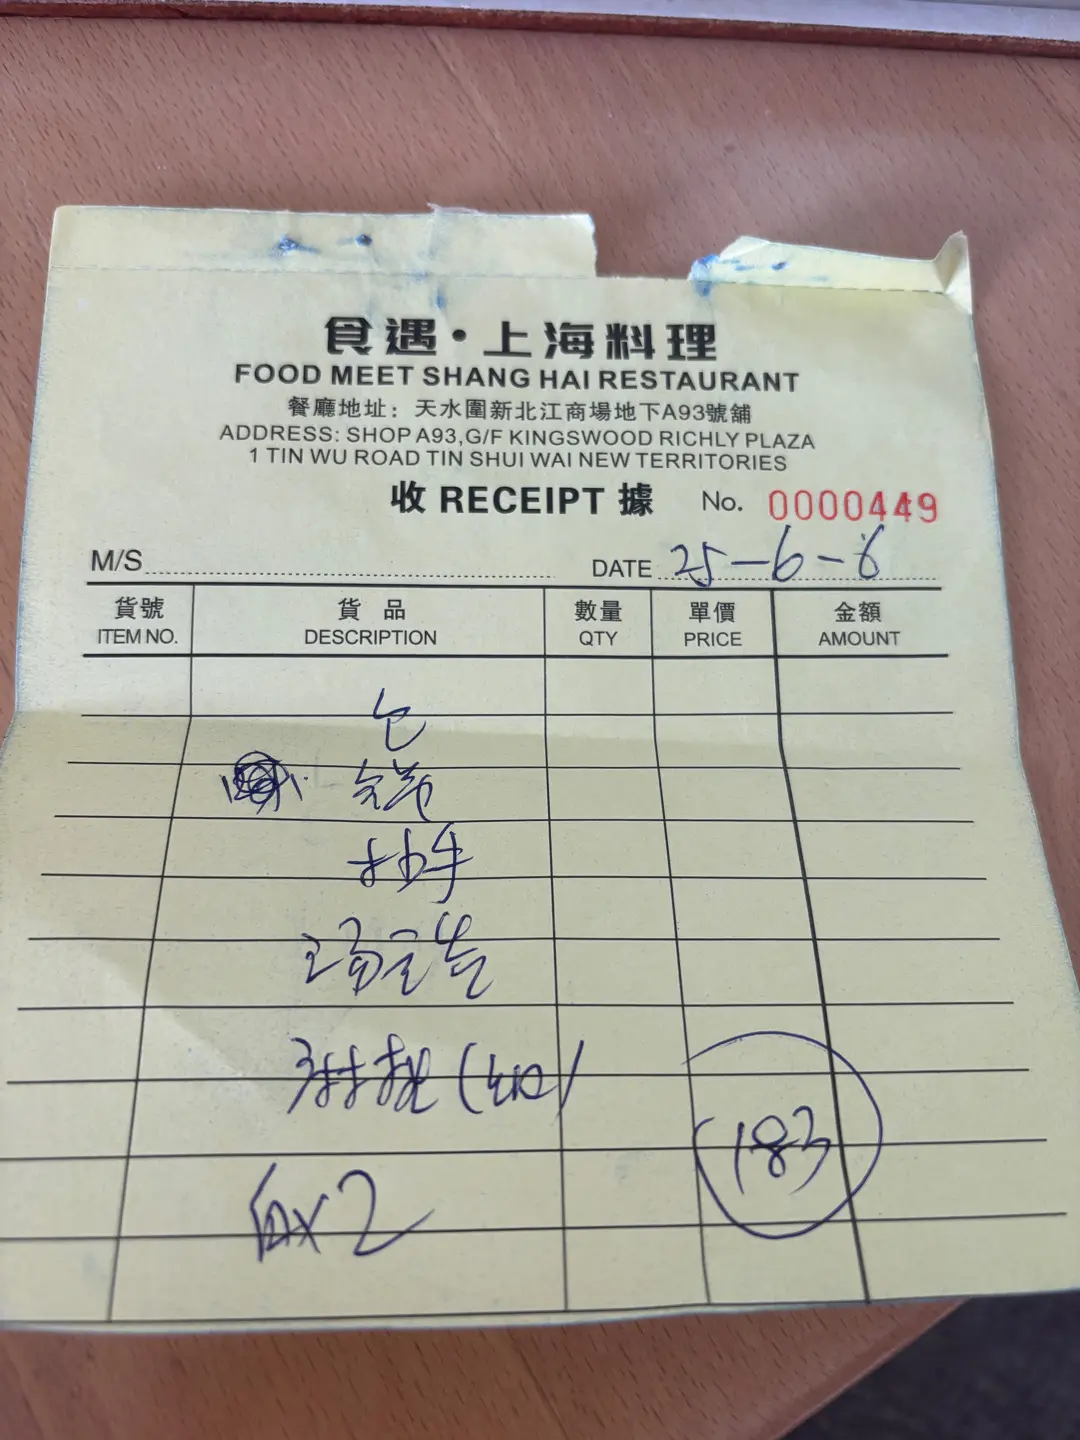 食遇·上海料理
FOOD MEET SHANG HAI RESTAURANT
餐廳地址：天水圍新北江商場地下A93號舖
ADDRESS: SHOP A93,G/F KINGSWOOD RICHLY PLAZA
1 TIN WU ROAD TIN SHUI WAI NEW TERRITORIES
收 RECEIPT 據 No. 0000449
M/S DATE 25-6-6
貨號 貨品 數量 單價 金額
ITEM NO. DESCRIPTION QTY PRICE AMOUNT
包
抄手
183
白x2